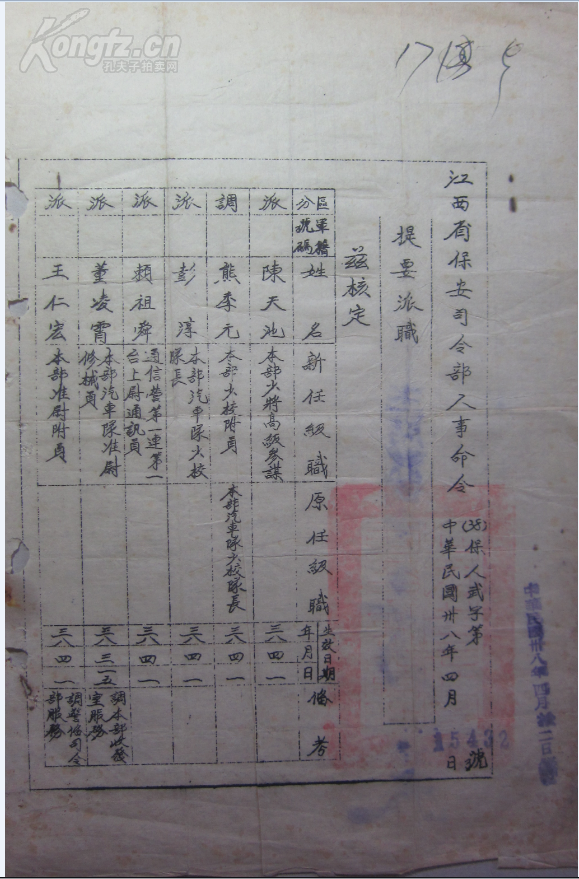 Kongfz.cn
孔夫子拍卖网
江西省保安司令部人事命令
(38)保人貳字第15432號
中華民國卅八年四月日
提要派職
茲核定
區分
軍籍號碼
姓名
新任級職
原任級職
生效日期
年月日
備考
派
陳天池
本部少將高級參謀
三八四一
調
熊季元
本部少校附員
本部汽車隊少校隊長
三八四一
派
彭淳
本部汽車隊少校
隊長
三八四一
派
賴祖舜
通信營第一連第一
台上尉通訊員
三八四一
派
董凌霄
本部汽車隊准尉
修械員
三八三一五
調本部收發
室服務
派
王仁宏
本部准尉附員
三八四一
調警備司令
部服務